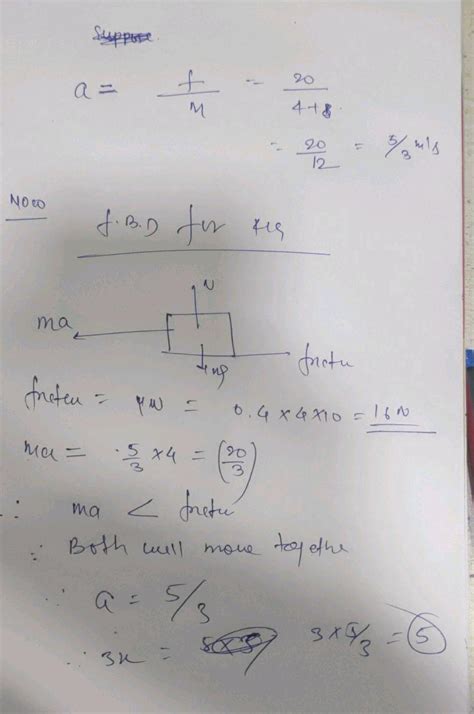 Suppose
a = f/M = 20/4+8
= 20/12 = 5/3 m/s
Now
F.B.D for 4kg
N
ma
mg
friction
friction = μN = 0.4 × 4 × 10 = 16 N
ma = 5/3 × 4 = (20/3)
∴ ma < friction
∵ Both will move together
∴ a = 5/3
∴ 3x = 3 × 5/3 = 5